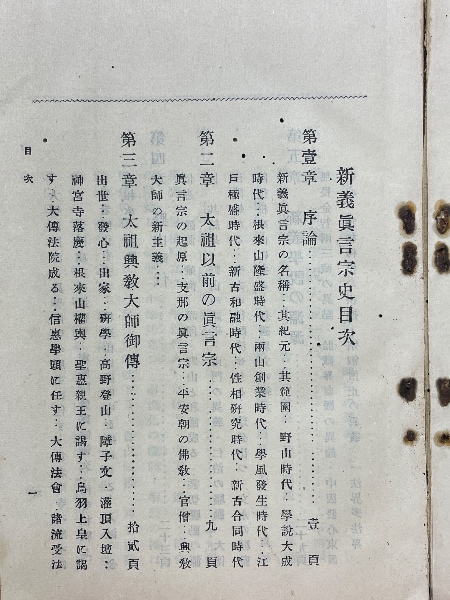 新義眞言宗史目次
第壹章 序論‥‥‥‥‥‥‥‥‥‥壹頁
新義眞言宗の名稱‥其紀元‥其範圍‥野山時代‥學說大成
時代‥根來山隆盛時代‥兩山創業時代‥學風發生時代‥江
戶極盛時代‥新古和融時代‥性相硏究時代‥新古合同時代
第二章 太祖以前の眞言宗‥‥‥‥九頁
眞言宗の起原‥支那の眞言宗‥平安朝の佛敎‥官僧‥興敎
大師の新主義‥‥
第三章 太祖興敎大師御傳‥‥‥‥拾貳頁
出世‥發心‥出家‥硏學‥高野登山‥障子文‥灌頂入壇‥
神宮寺落慶‥根來山權輿‥聖惠親王に謁す‥鳥羽上皇に謁
す‥大傳法院成る‥信惠學頭に任す‥大傳法會‥諸流受法
目次
一